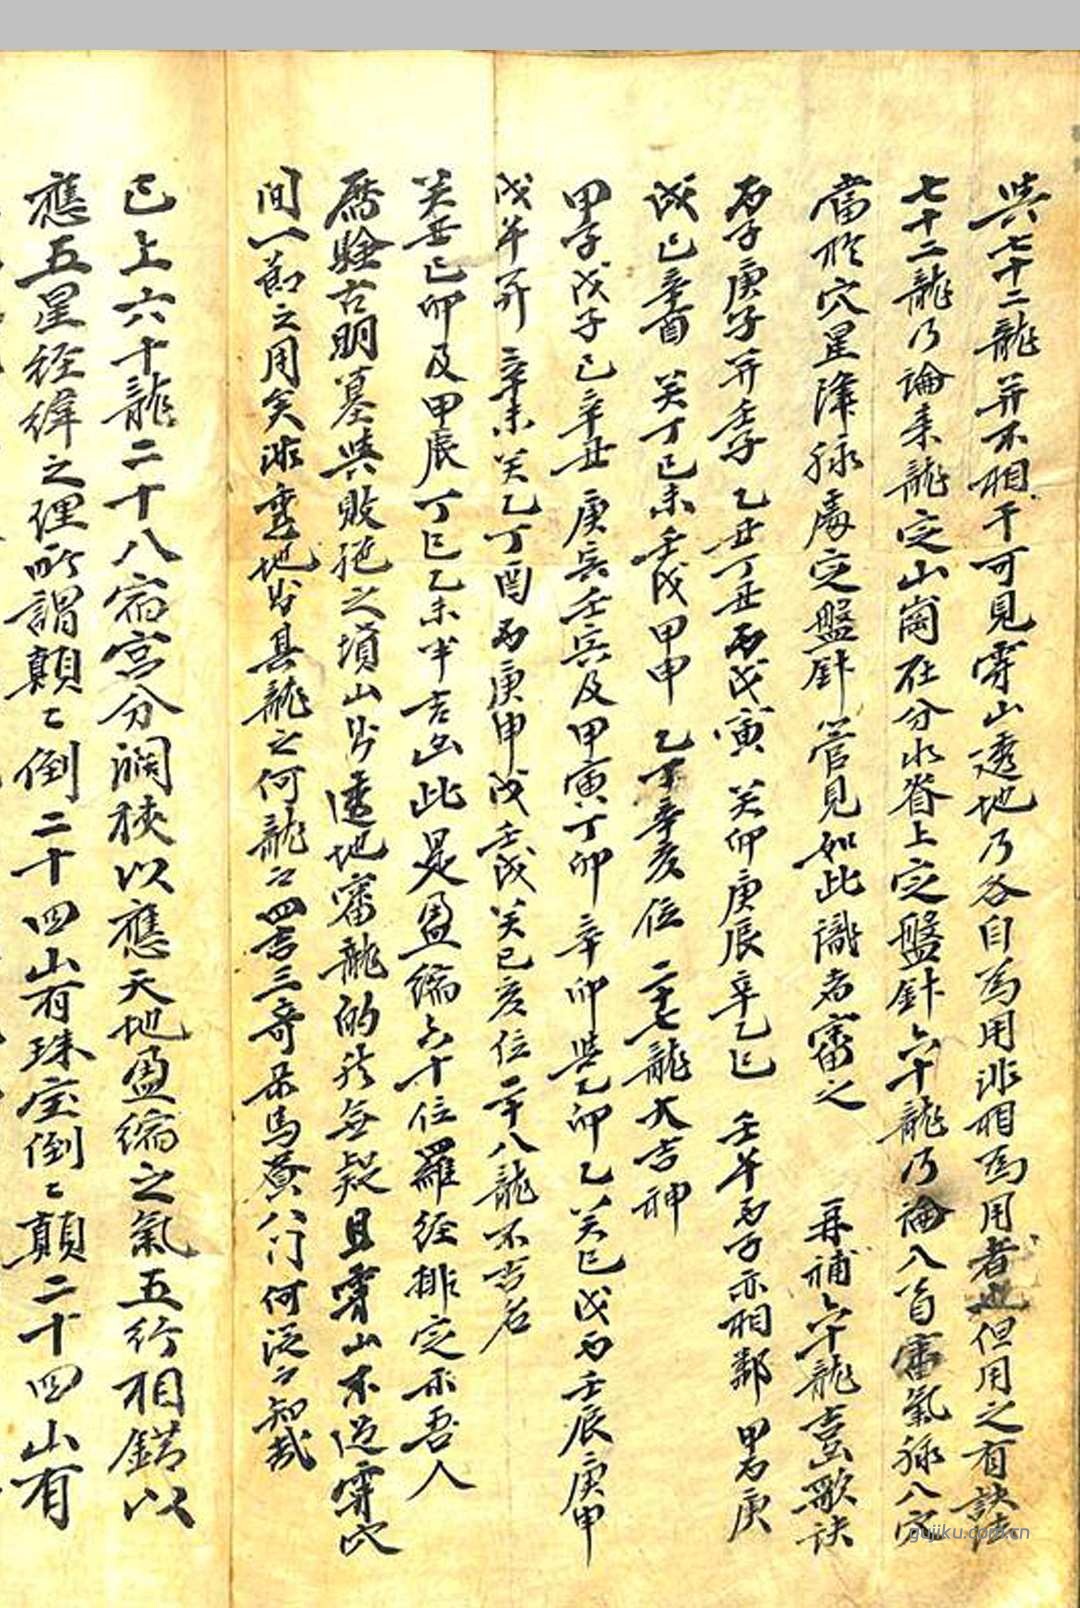 與七十二龍并不相干可見穿山透地乃各自爲用非相爲用者也但用之有訣法
七十二龍乃論來龍定山崗在分水脊上定盤針六十龍乃論入首審氣脉入穴
當於穴星降脉處定盤針管見如此識者審之 再補六十龍吉凶歌訣
丙子庚子并壬子 乙丑丁丑丙戊寅 癸卯庚辰辛乙巳 壬午丙子亦相鄰 甲丙庚
戌己辛酉 癸丁己未壬戊甲申 乙丁辛亥位 二十七龍大吉神
甲子戊子己辛丑 庚寅壬寅及甲寅丁卯 辛卯與乙卯乙癸巳戊丙壬辰庚甲
戊午并 辛未癸乙丁酉丙庚申戊壬戌癸己亥位二十八龍不吉名
癸丑己卯及甲辰丁巳乙未半吉凶此是盈縮六十位羅經排定示吾人
歷驗古明墓與敗絶之墳山以透地審龍的於無疑且穿山不過穿穴
間一節之用矣非透地以其龍之何龍之四吉三奇子馬貴八門何從而知哉
已上六十龍二十八宿宮分濶狹以應天地盈縮之氣五行相錯以
應五星經緯之理所謂顛々倒二十四山有珠宝倒々顛二十四山有
gujiku.com.cn